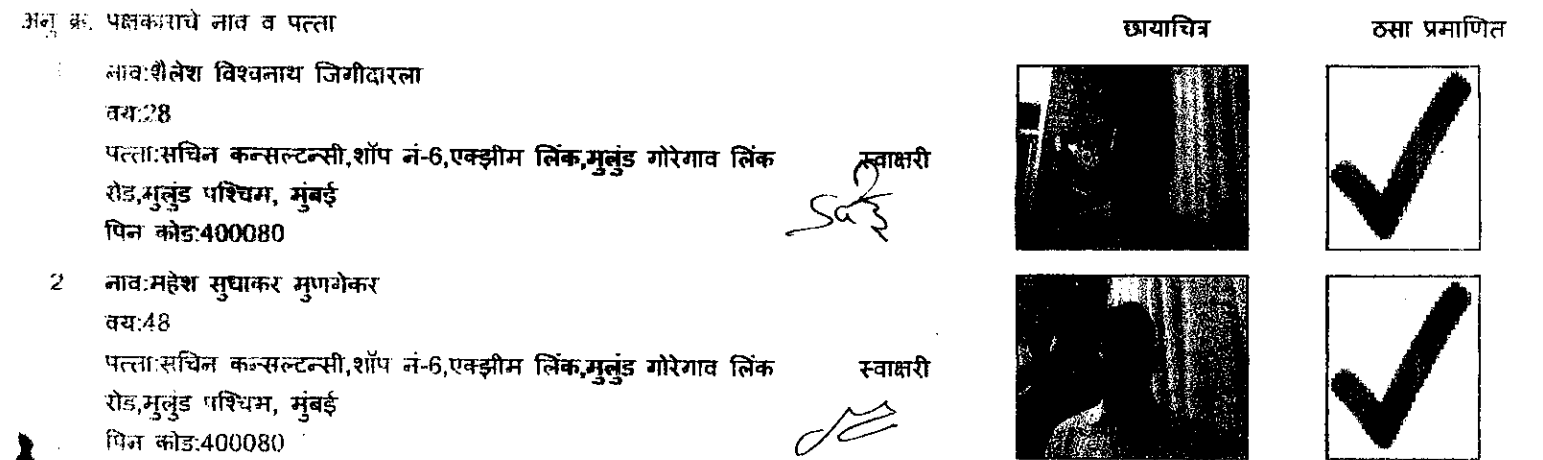 अनु क्र. पक्षकाराचे नाव व पत्ता छायाचित्र ठसा प्रमाणित
नाव:शैलेश विश्वनाथ जिगीदारला
वय:28
पत्ता:सचिन कन्सल्टन्सी,शॉप नं-6,एक्झीम लिंक,मुलुंड गोरेगाव लिंक स्वाक्षरी
रोड,मुलुंड पश्चिम, मुंबई
पिन कोड:400080
2 नाव:महेश सुधाकर मुणगेकर
वय:48
पत्ता:सचिन कन्सल्टन्सी,शॉप नं-6,एक्झीम लिंक,मुलुंड गोरेगाव लिंक स्वाक्षरी
रोड,मुलुंड पश्चिम, मुंबई
पिन कोड:400080